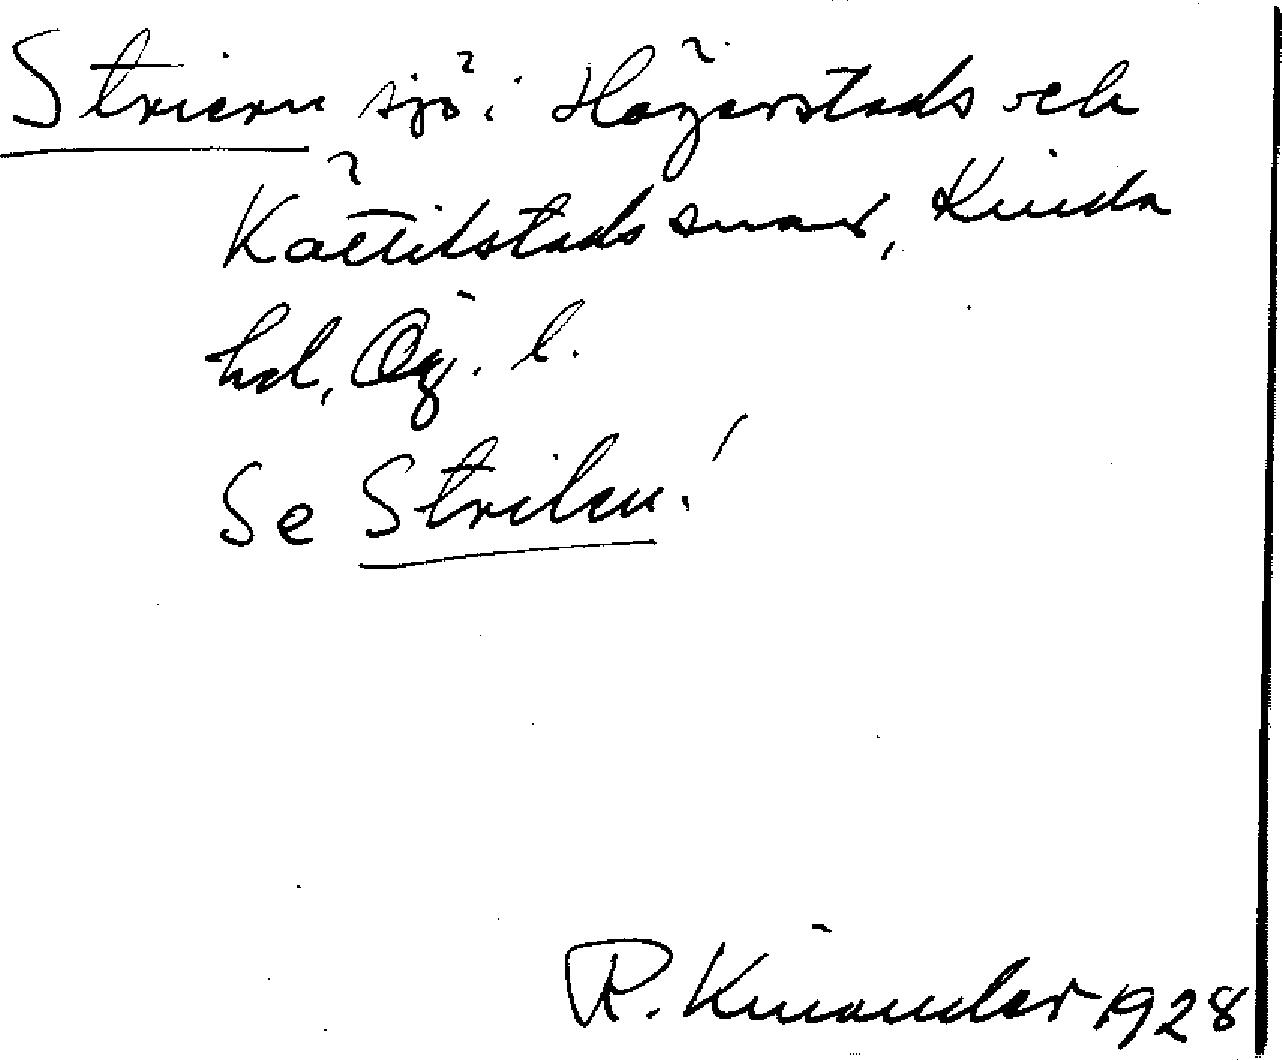 Striern sjö i Hägerstads och
Kättilstads snar, Kinda
hd, Ög. l.
Se Strilen!
R. Kinander 1928